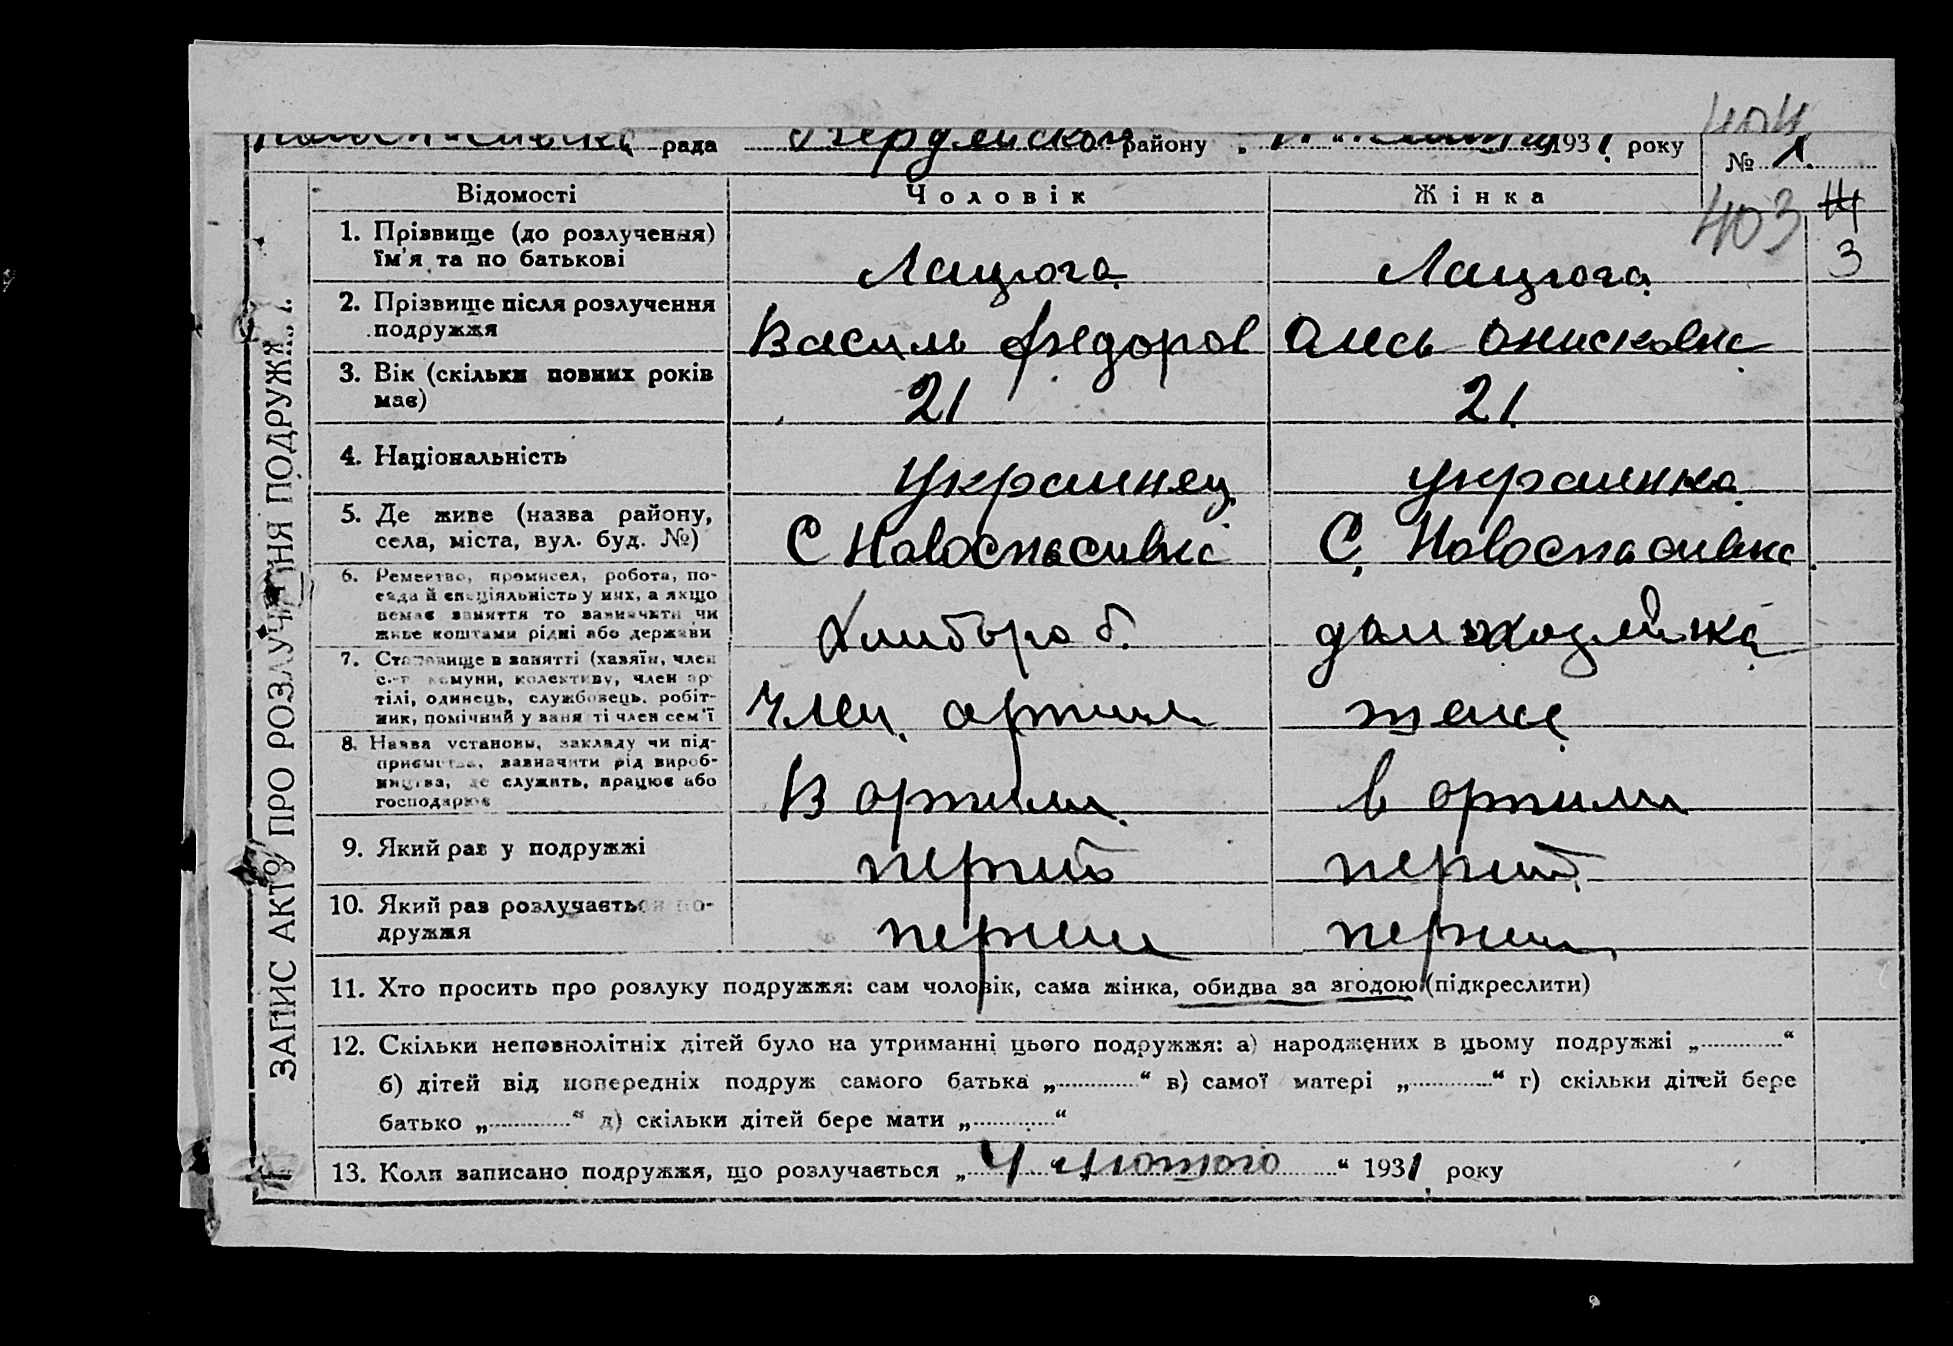 404
рада Бердянского району „ “ 1931 року № 1.
Відомості Чоловік Жінка
403
3
1. Прізвище (до розлучення) ім'я та по батькові Лацюга Лацюга
2. Прізвище після розлучення подружжя Василь Федоров Олесь Онисковна
3. Вік (скільки повних років має) 21 21
4. Національність Украинец украинка
5. Де живе (назва району, села, міста, вул. буд. №) С Новоспасивка С. Новоспасивка
6. Ремество, промисел, робота, посада й спеціяльність у них, а якщо немає заняття то зазначити чи живе коштами рідні або держави Хлибороб. домохозяйка
7. Становище в занятті (хазяїн, член с.-г. комуни, колективу, член артілі, одинець, службовець, робітник, помічний у занятті член сем'ї Член артили
8. Назва установи, закладу чи підприємства, зазначити рід виробництва, де служить, працює або господарює В артили в артили
9. Який раз у подружжі перший перший
10. Який раз розлучається подружжя перший перший
11. Хто просить про розлуку подружжя: сам чоловік, сама жінка, обидва за згодою (підкреслити)
12. Скільки неповнолітніх дітей було на утриманні цього подружжя: а) народжених в цьому подружжі „ “
б) дітей від попередніх подруж самого батька „ “ в) самої матері „ “ г) скільки дітей бере
батько „ “ д) скільки дітей бере мати „ “
13. Коли записано подружжя, що розлучається „ 4 лютого “ 1931 року
ЗАПИС АКТУ ПРО РОЗЛУЧЕННЯ ПОДРУЖЖЯ